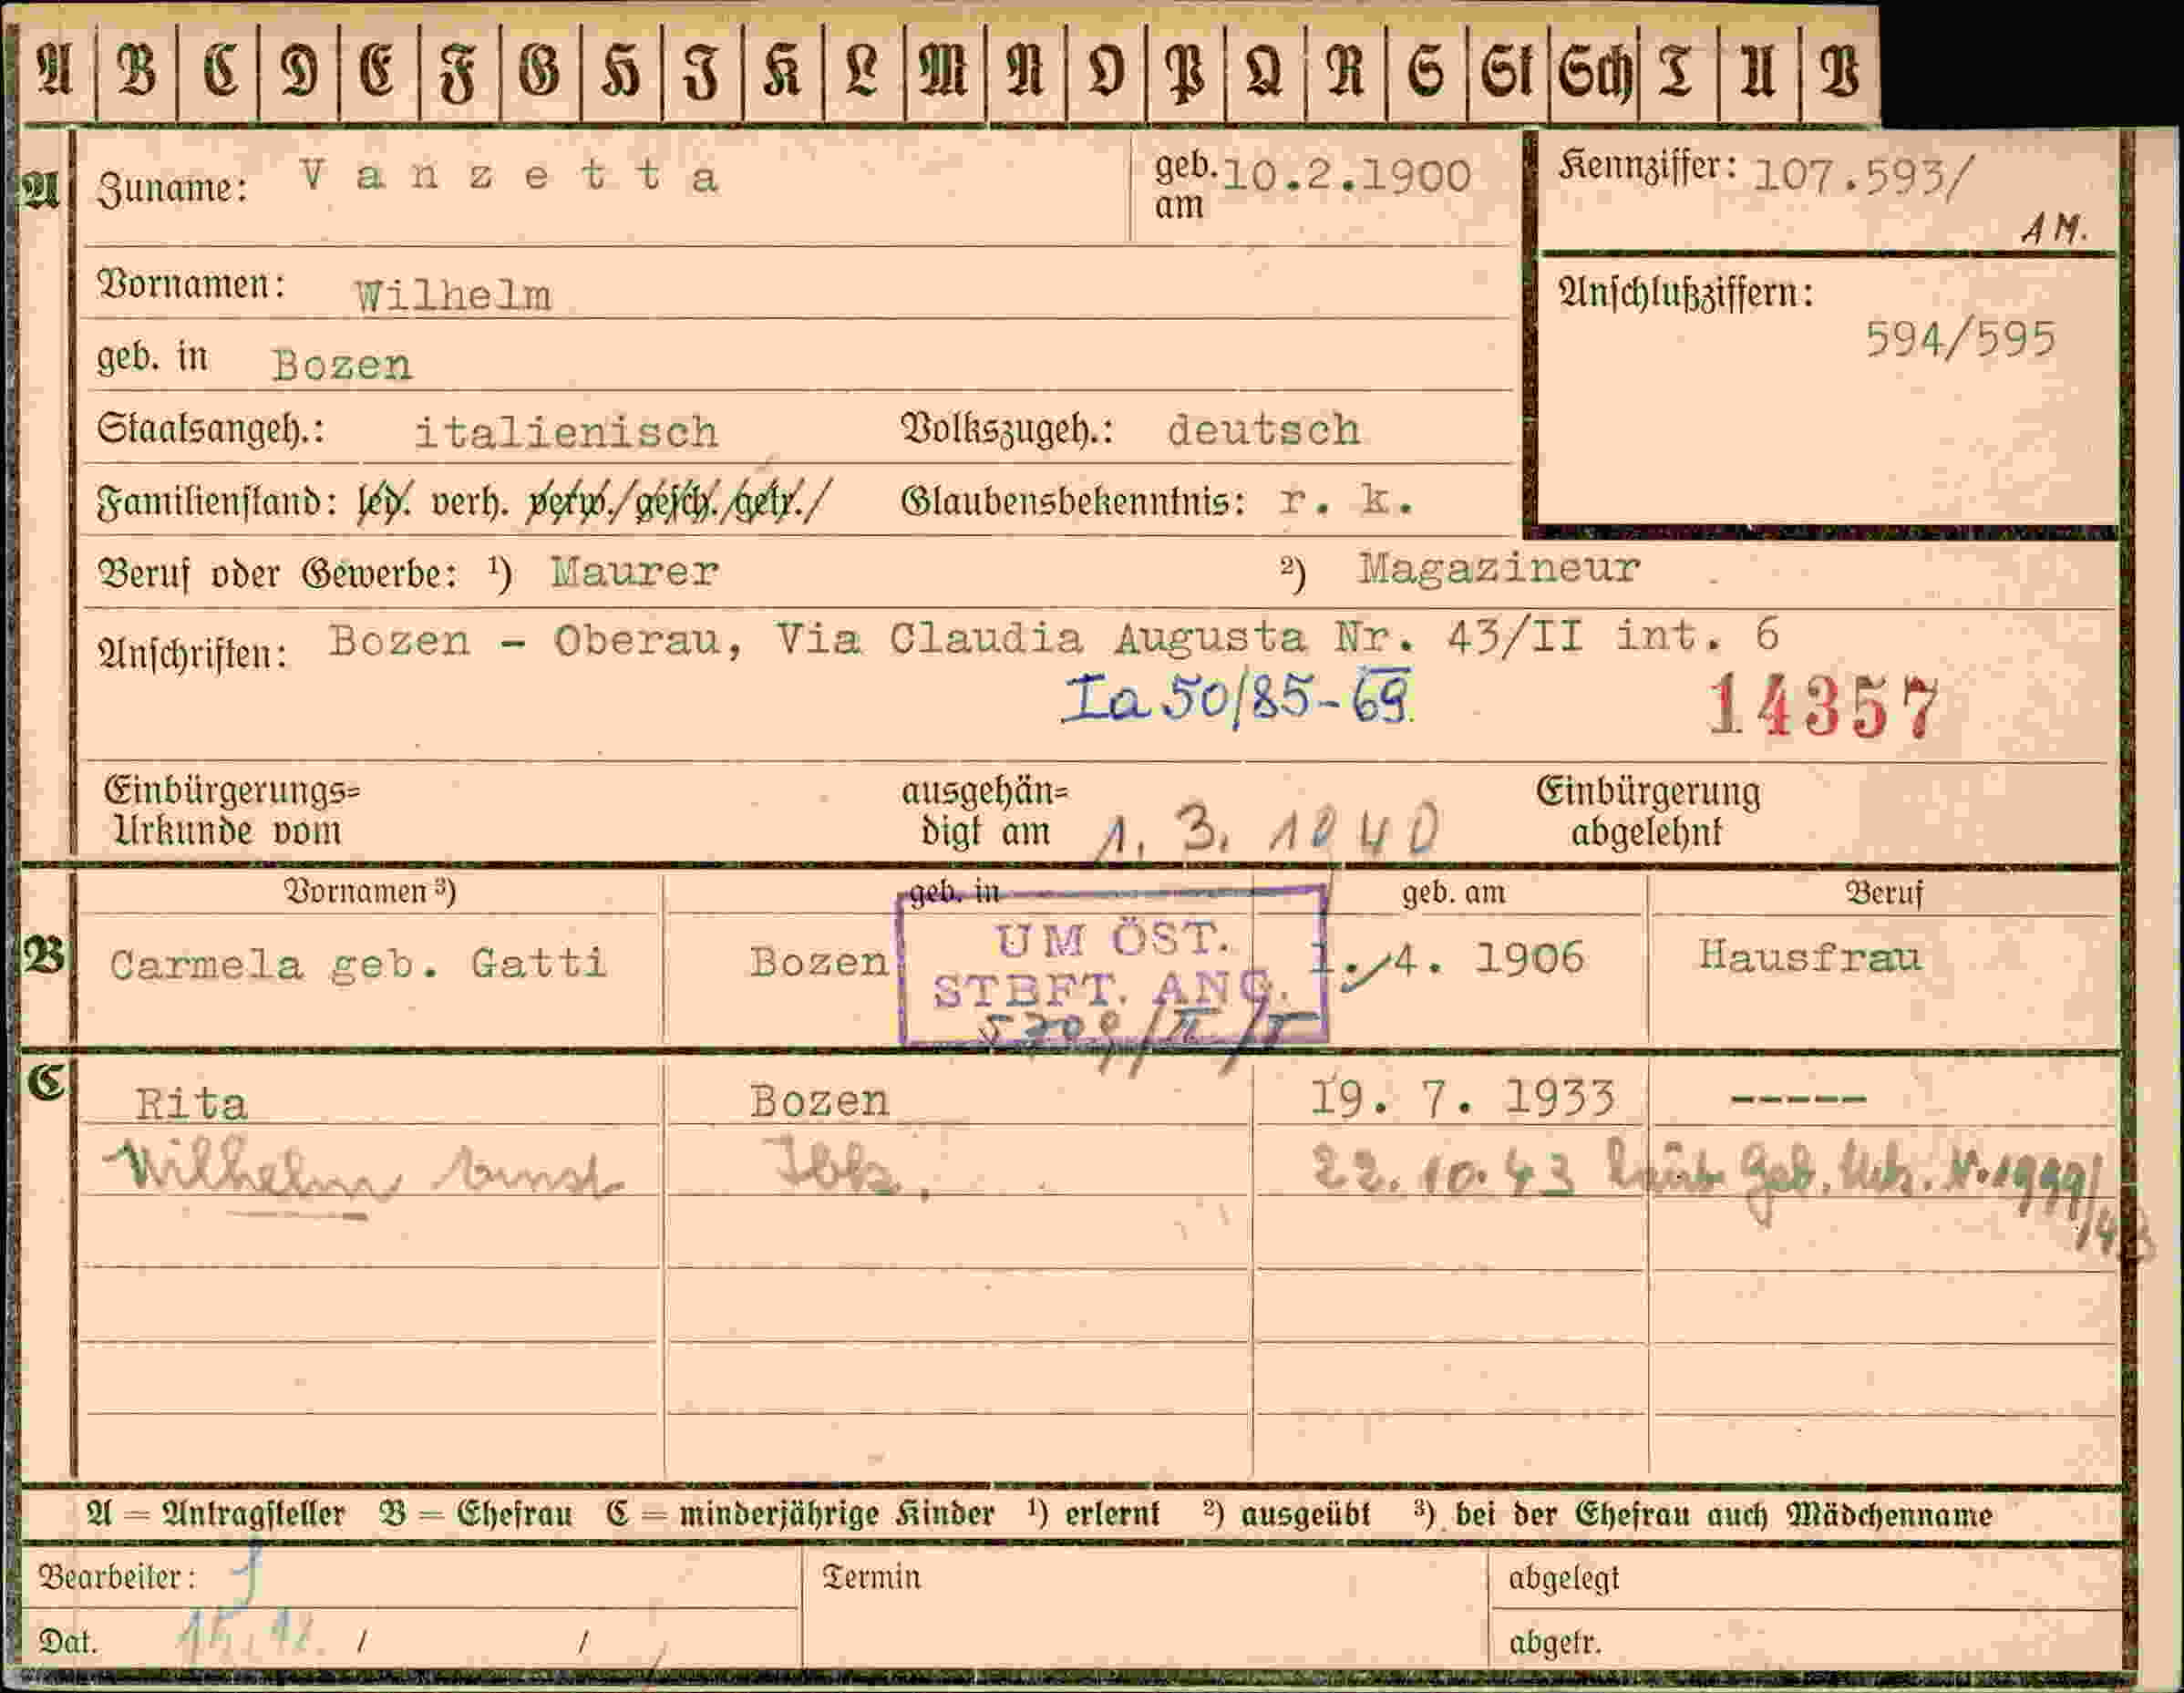 A B C D E F G H J K L M N O P Q R S St Sch T U V
A Zuname: Vanzetta geb. am 10.2.1900 Kennziffer: 107.593/
AM.
Vornamen: Wilhelm Anschlußziffern:
594/595
geb. in Bozen
Staatsangeh.: italienisch Volkszugeh.: deutsch
Familienstand: led. verh. verw./gesch./getr./ Glaubensbekenntnis: r. k.
Beruf oder Gewerbe: ¹) Maurer ²) Magazineur
Anschriften: Bozen - Oberau, Via Claudia Augusta Nr. 43/II int. 6
Ia 50/85-69 14357
Einbürgerungs= Urkunde vom ausgehän= digt am 1. 3. 1940 Einbürgerung abgelehnt
Vornamen ³) geb. in geb. am Beruf
B Carmela geb. Gatti Bozen 1. 4. 1906 Hausfrau
UM ÖST.
STBFT. ANG.
C Rita Bozen 19. 7. 1933 -----
Wilhelm Ernst Ibk. 22.10.43 laut Geb. Urk. N. 1999/
/43
A = Antragsteller B = Ehefrau C = minderjährige Kinder ¹) erlernt ²) ausgeübt ³) bei der Ehefrau auch Mädchenname
Bearbeiter: Termin abgelegt
Dat. 15.12. / / abgetr.